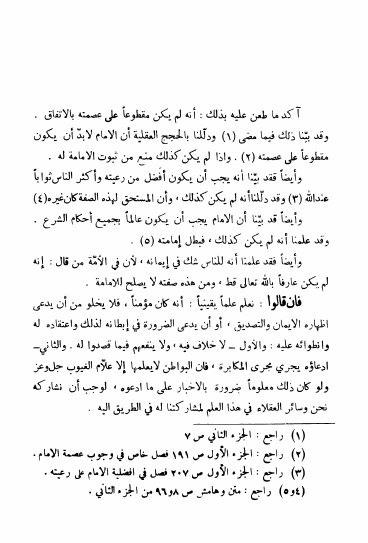 آكد ما طعن عليه بذلك : أنه لم يكن مقطوعاً على عصمته بالاتفاق .
وقد بيّنا ذلك فيما مضى (١) ودلّلنا بالحجج العقلية أن الامام لابدّ أن يكون
مقطوعاً على عصمته (٢) . واذا لم يكن كذلك منع من ثبوت الامامة له .
وأيضاً فقد بيّنا أنه يجب أن يكون أفضل من رعيته وأكثر الناس ثواباً
عندالله (٣) وقد دلّلنا أنه لم يكن كذلك ، وأن المستحق لهذه الصفة كان غيره (٤)
وأيضاً قد بيّنا أن الامام يجب أن يكون عالماً بجميع أحكام الشرع .
وقد علمنا أنه لم يكن كذلك ، فبطل إمامته (٥) .
وأيضاً فقد علمنا أنه للناس شك في إيمانه ، لأن في الأمّة من قال : إنه
لم يكن عارفاً بالله تعالى قط ، ومن هذه صفته لا يصلح للامامة .
فان قالوا : نعلم علماً يقينياً : أنه كان مؤمناً ، فلا يخلو من أن يدعى
اظهاره الايمان والتصديق ، أو أن يدعى الضرورة في إبطانه لذلك واعتقاده له
وانطوائه عليه : والأول ــ لا خلاف فيه ، ولا ينفعهم فيما قصدوا له . والثاني ــ
ادعاؤه يجري مجرى المكابرة ، فان البواطن لا يعلمها إلا علام الغيوب جل وعز
ولو كان ذلك معلوماً ضرورة بالاخبار على ما ادعوه ، لوجب أن نشاركه
نحن وسائر العقلاء في هذا العلم لمشاركتنا له في الطريق اليه .
(١) راجع : الجزء الثاني ص ٧
(٢) راجع : الجزء الأول ص ١٩١ فصل خاص في وجوب عصمة الامام .
(٣) راجع : الجزء الأول ص ٢٠٧ فصل في افضلية الامام على رعيته .
(٤ و٥) راجع : متن وهامش ص ٨ و٩٦ من الجزء الثاني .